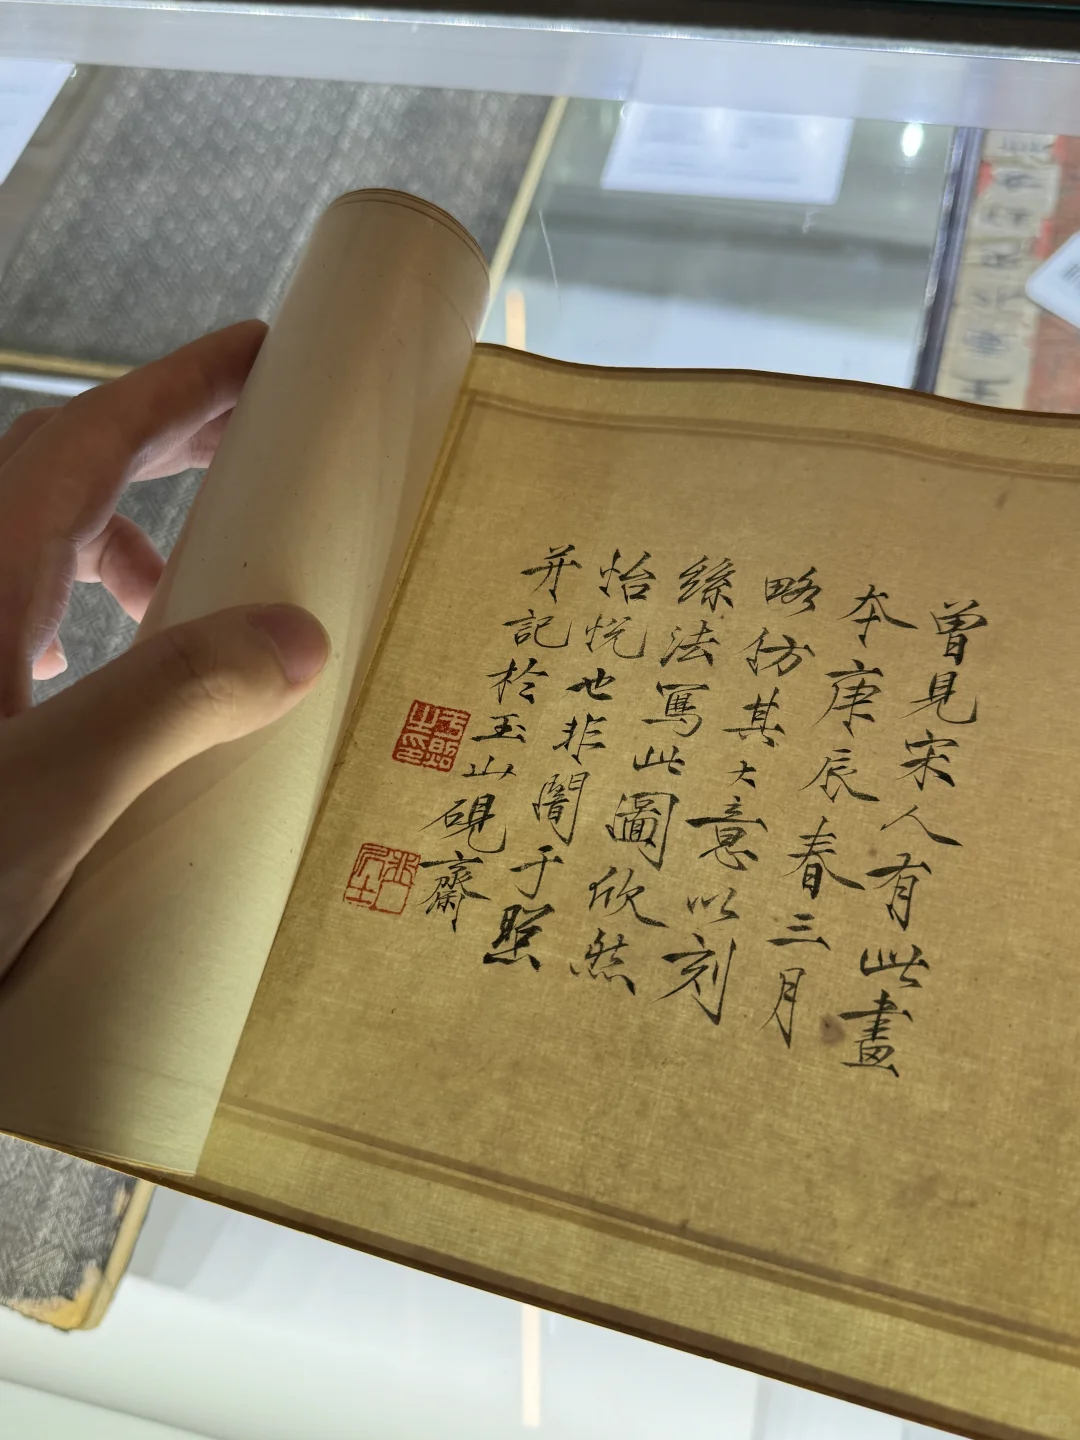 曾見宋人有此畫
本庚辰春三月
略仿其大意以刻
絲法寫此圖欣然
怡悅也非闇于照
并記於玉山硯齋
于照之印